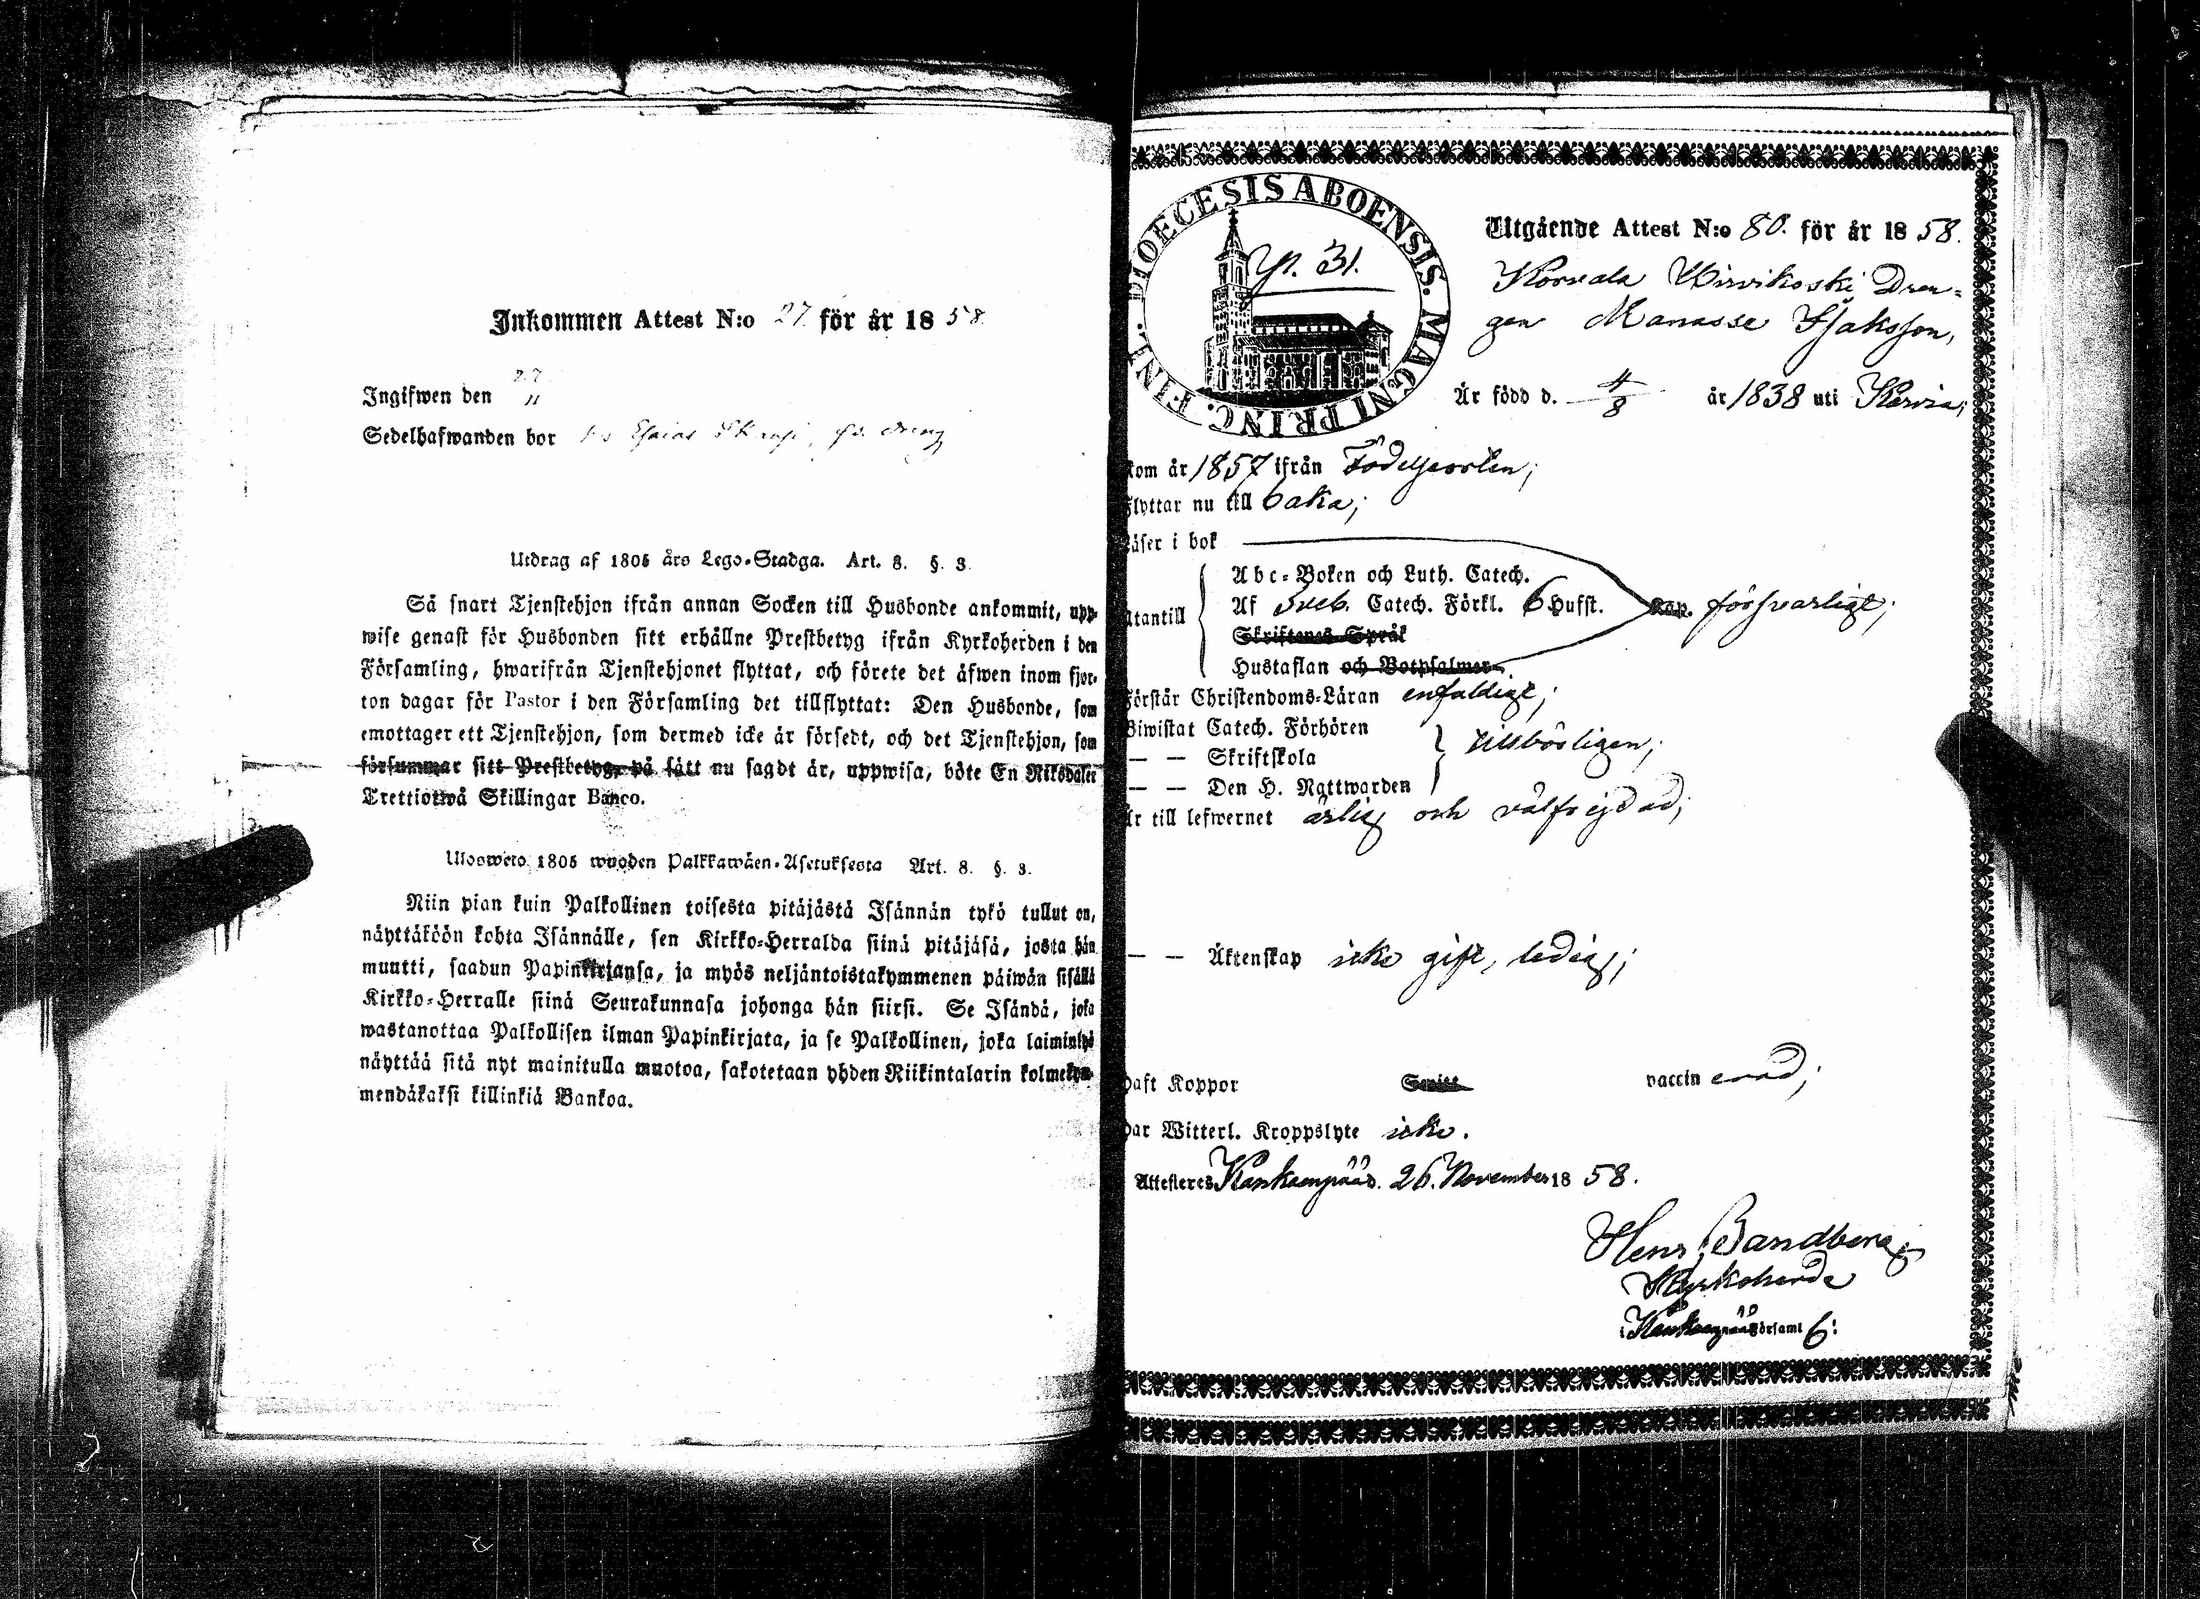 Inkommen Attest N:o 27. för år 1858.
Ingifwen den 27/11
Sedelhafwanden bor Esaias dreng
Utdrag af 1805 års Lego-Stadga. Art. 8. §. 3.
Så snart Tjenstehjon ifrån annan Socken till Husbonde ankommit, upp-
wise genast för Husbonden sitt erhållne Prestbetyg ifrån Kyrkoherden i den
Församling, hwarifrån Tjenstehjonet flyttat, och förete det äfwen inom fjor-
ton dagar för Pastor i den Församling det tillflyttat: Den Husbonde, som
emottager ett Tjenstehjon, som dermed icke är försedt, och det Tjenstehjon, som
försummar sitt Prestbetyg, på sätt nu sagdt är, uppwisa, böte En Riksdaler
Trettiotwå Skillingar Banco.
Ulosweto 1805 wuoden Palkkawäen-Asetuksesta Art. 8. §. 3.
Niin pian kuin Palkollinen toisesta pitäjästä Isännän tykö tullut on,
näyttäköön kohta Isännälle, sen Kirkko-Herralda siinä pitäjäsä, josta hän
muutti, saadun Papinkirjansa, ja myös neljäntoistakymmenen päiwän sisällä
Kirkko-Herralle siinä Seurakunnasa johonga hän siirsi. Se Isändä, joka
wastanottaa Palkollisen ilman Papinkirjata, ja se Palkollinen, joka laiminlyö
näyttää sitä nyt mainitulla muotoa, sakotetaan yhden Riikintalarin kolmekym-
mendäkaksi killinkiä Bankoa.
DIOECESIS ABOENSIS. MAGNI PRINC. FINL.
31.
Utgående Attest N:o 80. för år 1858.
Korvala Wirvikoski Dren-
gen Manasse Isaksson,
Är född d. 4/8 år 1838 uti Kärvia;
kom år 1857 ifrån Födelseorten;
Flyttar nu till baka;
Läser i bok
Abc-Boken och Luth. Catech.
Utantill Af Sveb. Catech. Förkl. 6 Hufst. Kap. försvarligt;
Skriftenes Språk
Hustaflan och Botpsalmer.
Förstår Christendoms-Läran enfaldigt;
Biwistat Catech. Förhören
— — Skriftskola tillbörligen;
— — Den H. Nattwarden
Är till lefwernet ärlig och välfrejdad;
— — Äktenskap icke gift, ledig;
Haft Koppor vaccin erad;
Har Witterl. Kroppslyte icke.
Attesteres Kankaanpää d. 26. November 1858.
Henr. Sandberg
Kyrkoherde
i Kankaanpää Församl: